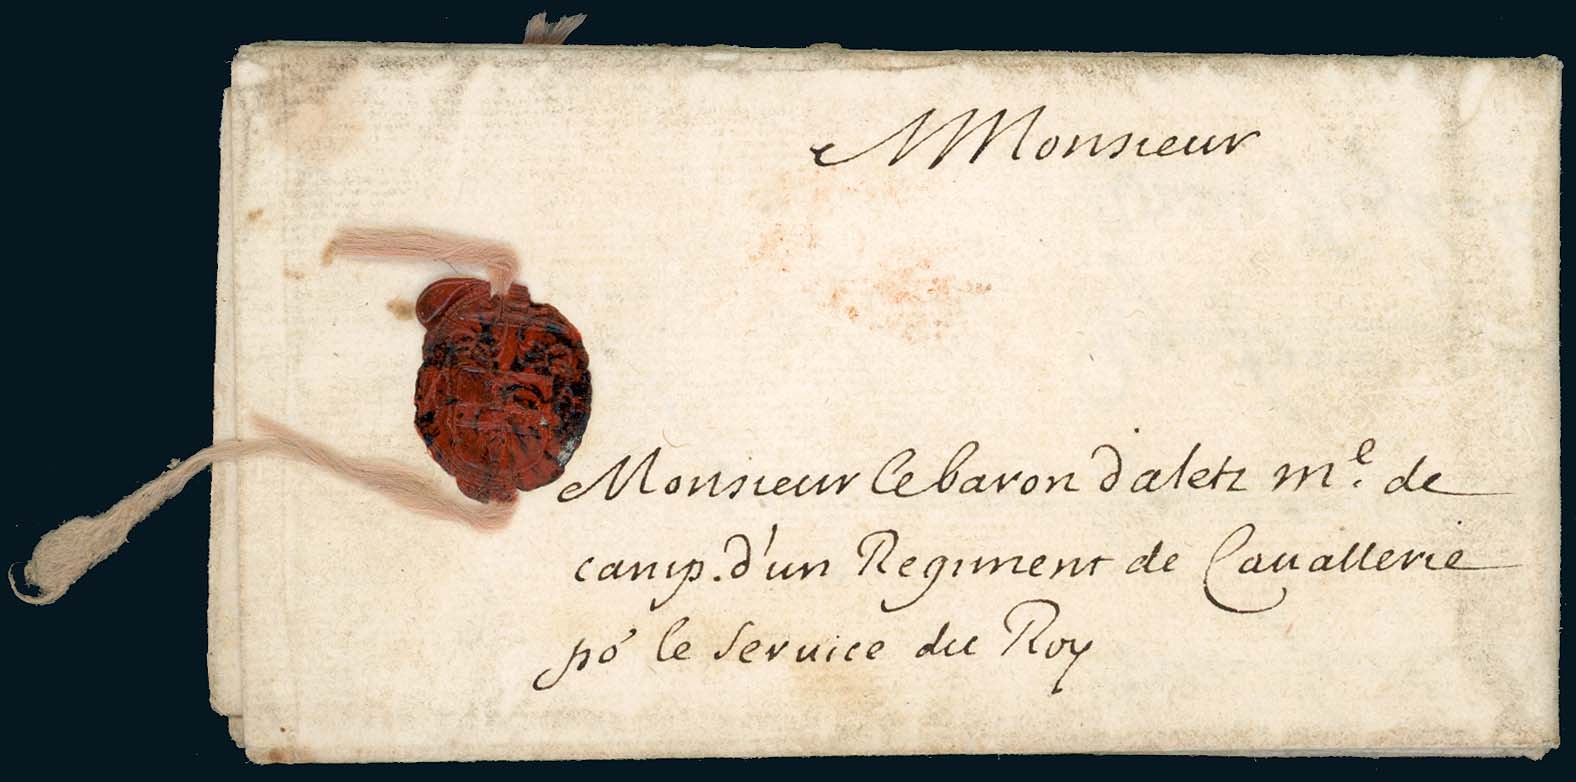 Monsieur
Monsieur le baron daletz m.e de
camp. d'un Regiment de Cauallerie
po.r le Seruice du Roy